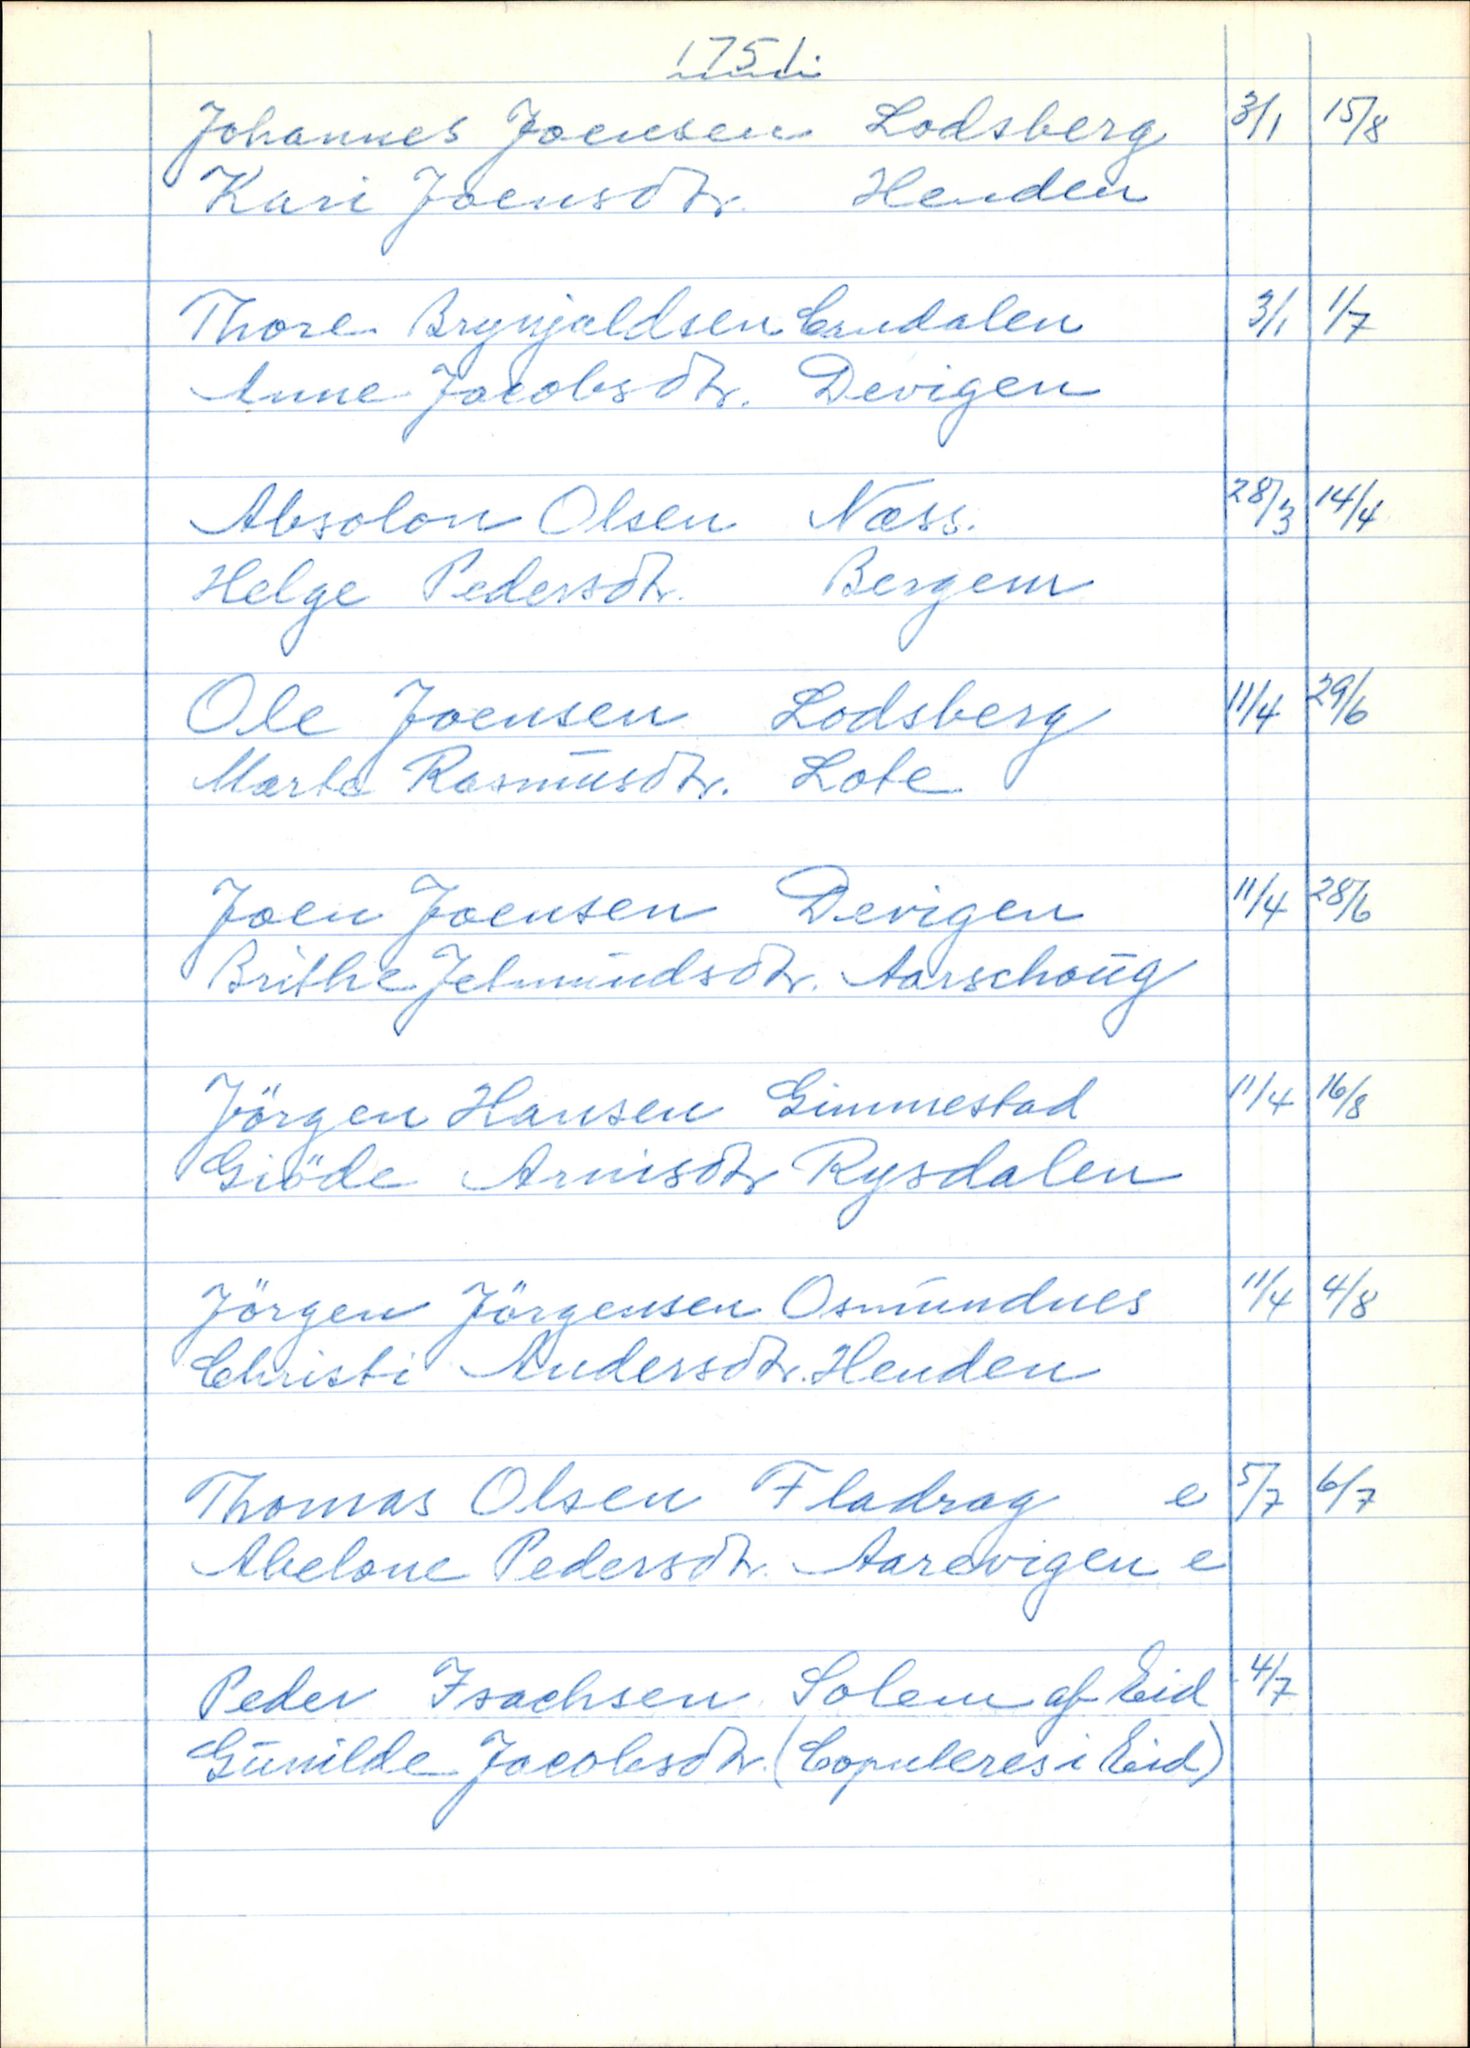 1751.
Johannes Joensen Lodsberg 3/1 15/8
Kari Joensdtr. Henden
Thore Brynjaldsen Endalen 3/1 1/7
Anne Jacobsdtr. Devigen
Absolon Olsen Næss. 28/3 14/4
Helge Pedersdtr. Bergem
Ole Joensen Lodsberg 11/4 29/6
Marte Rasmusdtr. Lote
Joen Joensen Devigen 11/4 28/6
Brithe Jetmundsdtr. Aarschoug
Jörgen Hansen Gimmestad 11/4 16/8
Giöde Arnisdtr Rysdalen
Jörgen Jörgensen Osmundnes 11/4 4/8
Christi Andersdtr. Henden
Thomas Olsen Fladrag e 5/7 6/7
Abelone Pedersdtr. Aarevigen e
Peder Isachsen Solem af Eid 4/7
Gunilde Jacobsdtr. (Copuleres i Eid)